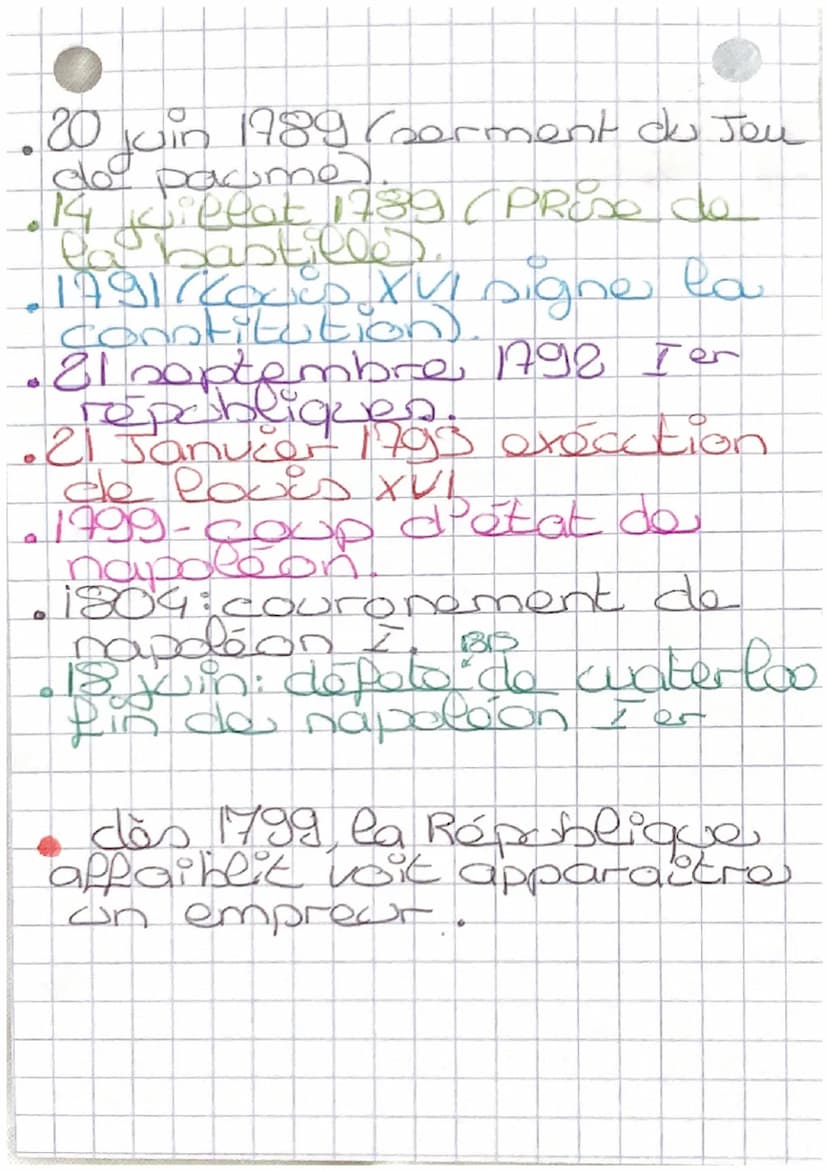 . 20 juin 1789 (serment du Jeu
de paume).
. 14 juillet 1789 (PRise de
la bastille).
. 1791 (Louis XVI signe la
constitution).
. 21 septembre 1792 Ier
républiques.
. 21 Janvier 1793 exécution
de louis XVI
. 1799 - coup d'état de
napoléon.
. 1804 : couronement de
napoléon I.
1815
. 18 juin : défaite de waterloo
fin de napoléon Ier
• dès 1799, la République
affaiblit voit apparaître
un empreur.